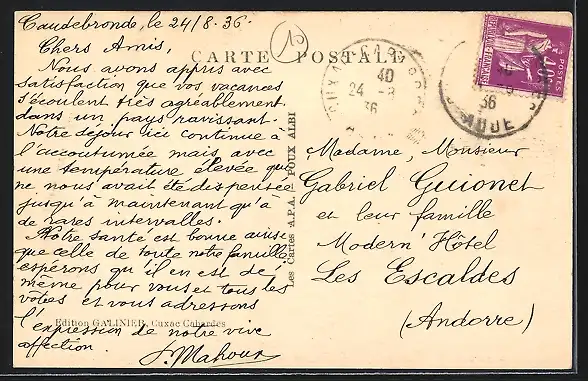 Caudebronde, le 24/8.36.
Chers Amis,
Nous avons appris avec
satisfaction que vos vacances
s'écoulent très agréablement
dans un pays ravissant.
Notre séjour ici continue à
l'accoutumée mais avec
une température élevée qui
ne nous avait été dispensée
jusqu'à maintenant qu'à
de rares intervalles.
Notre santé est bonne ainsi
que celle de toute notre famille
espérons qu'il en est de
même pour vous et tous les
vôtres et vous adressons
l'expression de notre vive
affection.
J. Mahoux
Edition GALINIER, Cuxac Cabardès
CARTE POSTALE
Les Cartes A.P.A. POUX ALBI
40
24 - 8
36
POSTES
40c
36
AUDE
Madame, Monsieur
Gabriel Guionet
et leur famille
Modern' Hôtel
Les Escaldes
(Andorre)